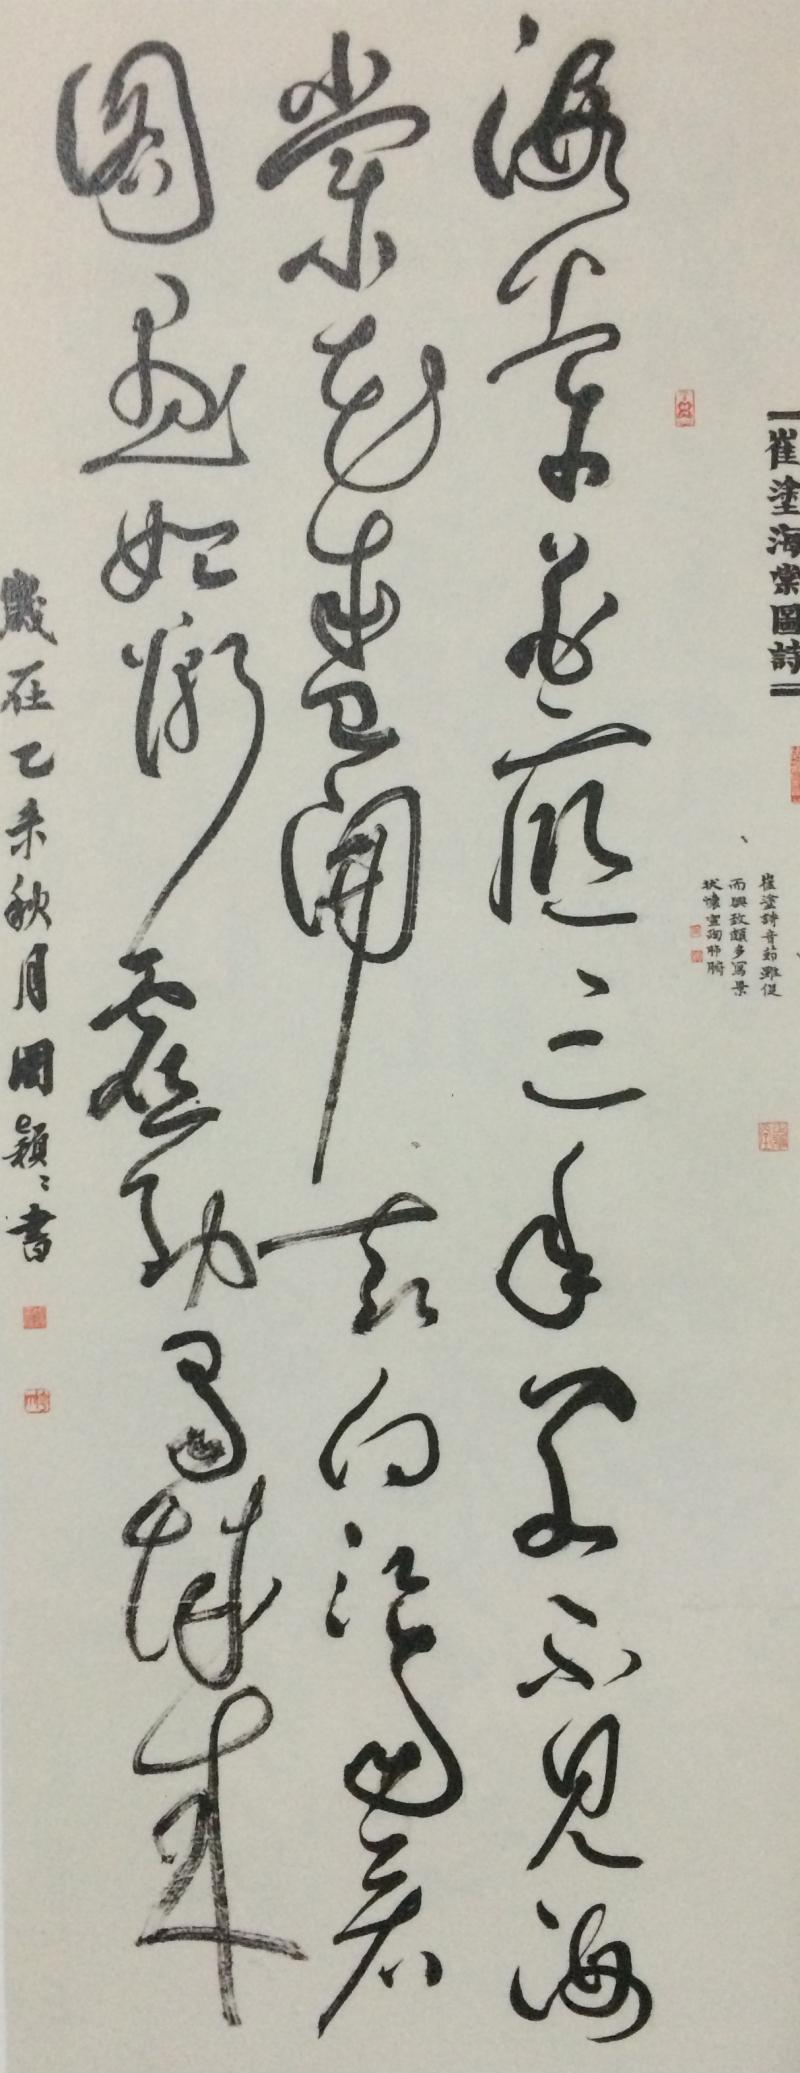 崔塗海棠圖詩
崔塗詩音節雖促
而興致頗多寫景
狀懷宣陶肺腑
海棠花底三年客不見海
棠花盛開却向江南看
圖畫始慚虛到蜀城來
歲在乙未秋月周穎〻書